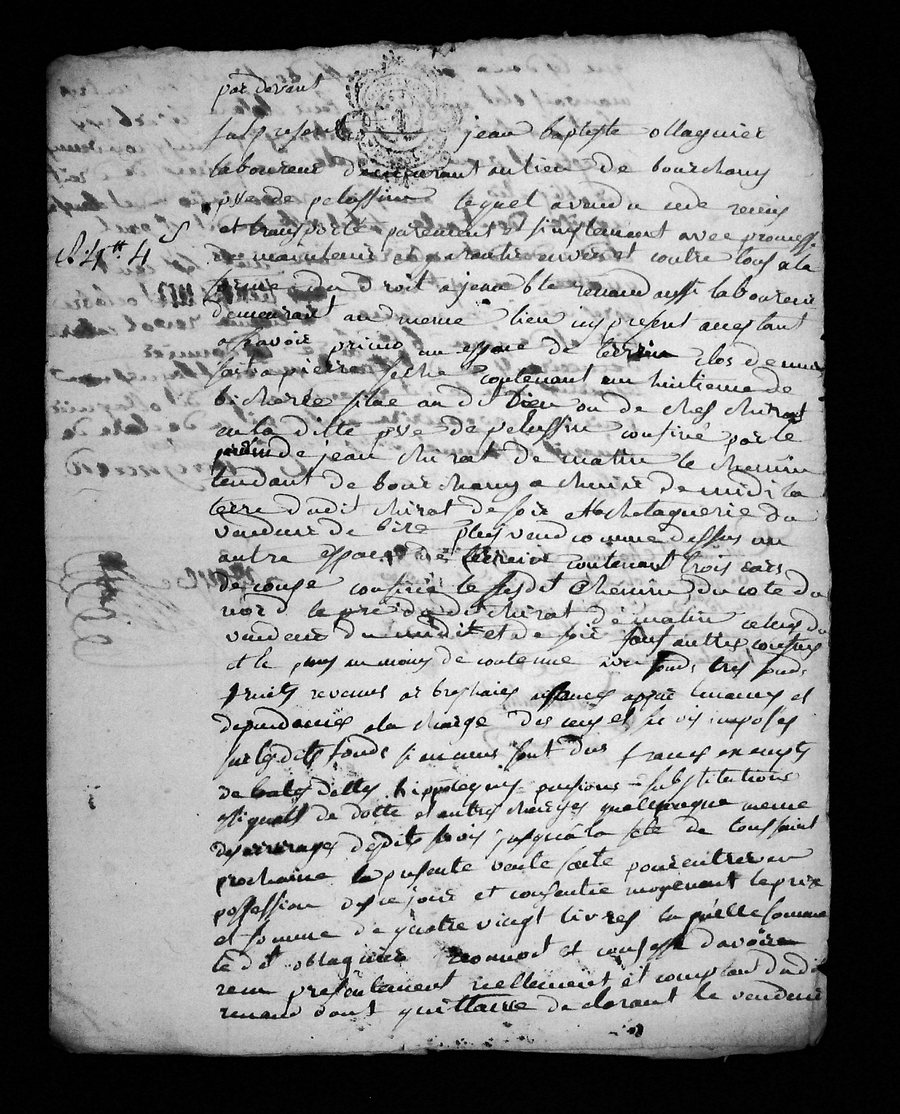 par devant
fut present jean baptiste ollagnier
laboureur demeurant au lieu de bourchany
psse de pelussin lequel a vendu cede remis
et transporté purement et simplement avec promesse
R. 4tt 4s
de maintenir et garantir envers et contre tous a la
forme du droit a jean bte renaud aussi laboureur
demeurant au meme lieu icy present acceptant
a sçavoir primo un espace de terrein clos de murs
fait a pierre seche contenant un huitieme de
bicherée situe au dit lieu ou de chez chirat
en la ditte psse de pelussin confiné par le
jardin de jean chirat de matin le chemin
tendant de bourchany a de midi la
terre dudit chirat de soir et chataguerie du
vendeur de bize plus vend comme dessus un
autre espace de terrein contenant trois cars
de coupe confiné le susdit chemin du cote du
nord le pré dudit chirat de matin celuy du
vendeur du midit et de soir sauf autres confins
et le plus ou moins de contenue avec fonds tres fonds
fruits revenus arbres haies aisances appartenances et
dependances a la charge des cens et servis imposes
sur lesdits fonds si aucuns sont dus francs exempts
de tales dettes hippoteques pensions substitutions
de dotte et autres charges quelconque meme
des arrerages desdits servis jusqu'a la fete de toussaint
prochaine la presente vente faite pour entrer en
possession des ce jour et consentie moyenant le prix
et somme de quatre vingt livres la quelle somme
le dit ollagnier reconnoit et confesse d'avoir
recu presentement reellement et comptant dudit
renaud dont quittance declarant le vendeur